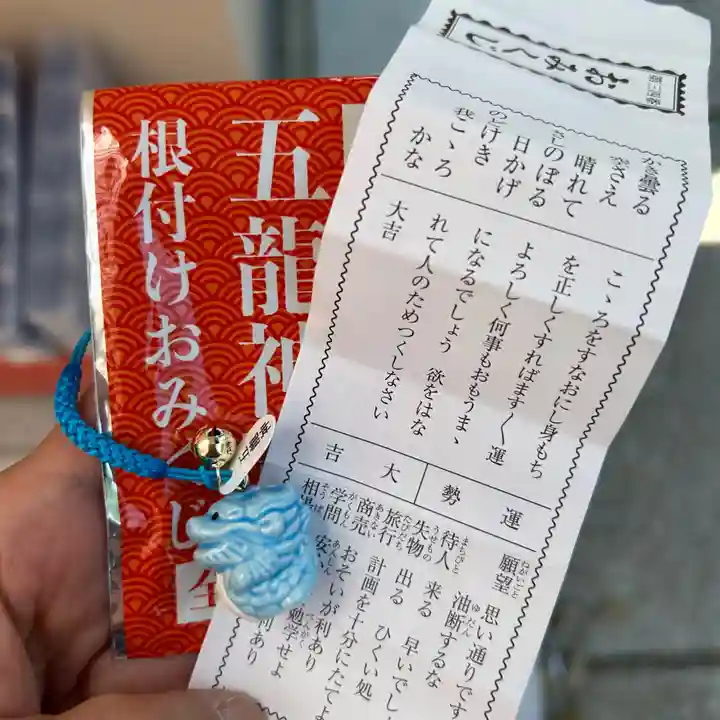 五龍神
根付けおみくじ
全
おみくじ
第三四番
かき曇る
空さえ
晴れて
さしのぼる
日かげ
のどけき
我こゝろ
かな
こゝろをすなおにし身もち
を正しくすればます〱運
よろしく何事もおもうまゝ
になるでしょう 欲をはな
れて人のためつくしなさい
大吉
運勢
大吉
願望 思い通りです
油断するな
待人 来る 早いでし
失物 出る ひくい処
旅行 計画を十分にたてよ
商売 おそいが利あり
学問 安 勉学せよ
相場 利あり